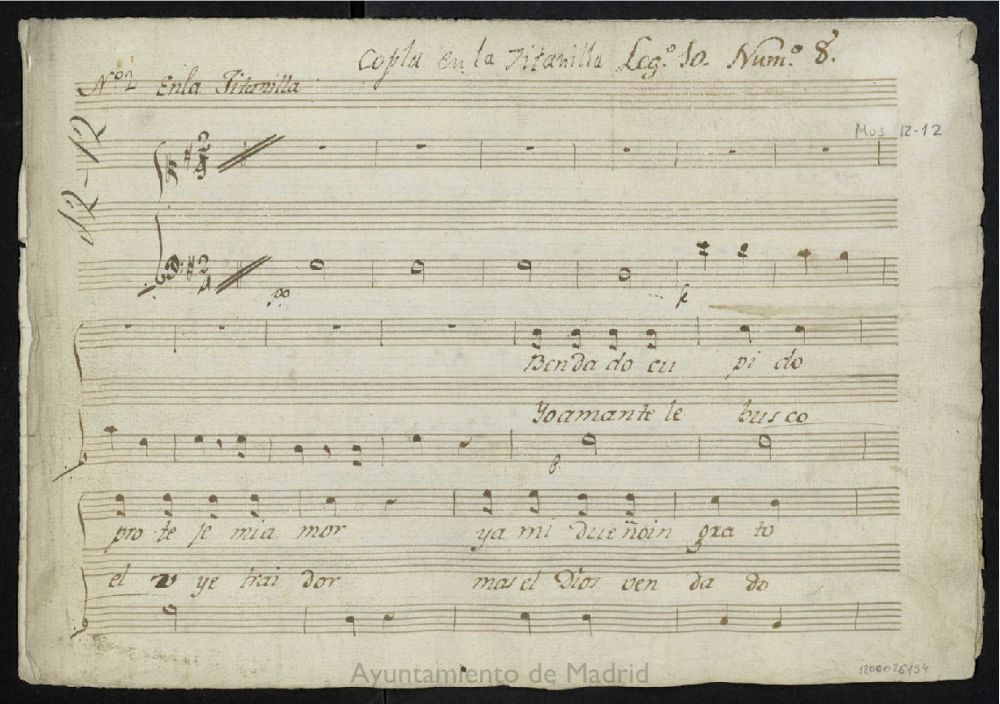 1
Copla en la Jitanilla Leg.º 10. Num.º 8.
N.º 2 En la Jitanilla
Mus 12-12
12-12
2
4
2
4
po
fe
Ben da do cu pi do
Yo amante le busco
p.
pro te je mi a mor ya mi due ño in gra to
el u ye trai dor mas el Dios ven da do
Ayuntamiento de Madrid